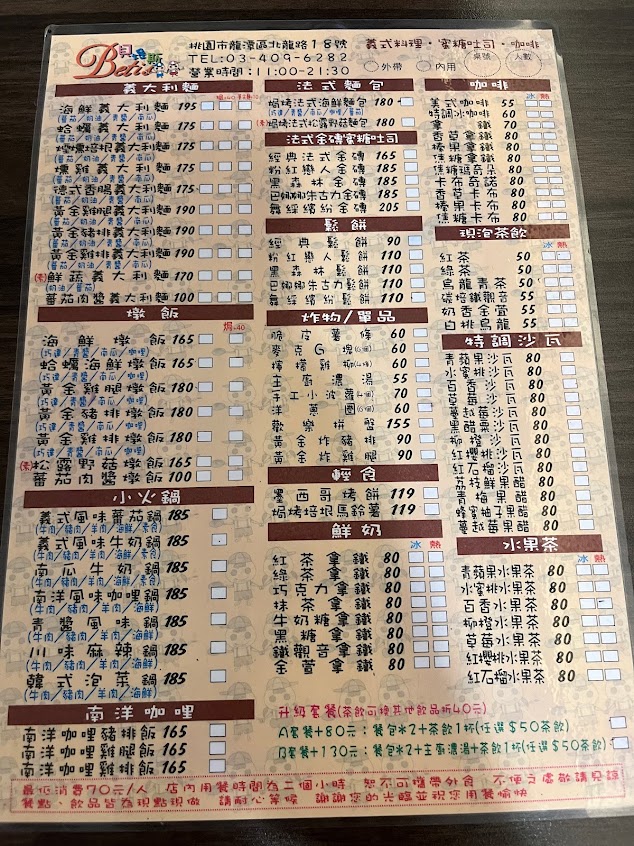 貝里斯
Beli's
桃園市龍潭區北龍路18號
TEL:03-409-6282
營業時間:11:00-21:30
義式料理・蜜糖吐司・咖啡
外帶 內用 桌號 人數
義大利麵
海鮮義大利麵 195
(蕃茄/奶油/青醬/南瓜)
蛤蠣義大利麵 175
(蕃茄/奶油/青醬/南瓜)
煙燻培根義大利麵 175
(蕃茄/奶油/青醬/南瓜)
燻雞義大利麵 175
(蕃茄/奶油/青醬/南瓜)
德式香腸義大利麵 175
(蕃茄/奶油/青醬/南瓜)
黃金雞腿義大利麵 190
(蕃茄/奶油/青醬/南瓜)
黃金豬排義大利麵 190
(蕃茄/奶油/青醬/南瓜)
黃金雞排義大利麵 190
(蕃茄/奶油/青醬/南瓜)
(素)鮮蔬義大利麵 170
(奶油/蕃茄)
蕃茄肉醬義大利麵 100
燉飯
焗+40
海鮮燉飯 165
(巧達/青醬/南瓜/咖哩)
蛤蠣海鮮燉飯 165
(巧達/青醬/南瓜/咖哩)
黃金雞腿燉飯 180
(巧達/青醬/南瓜/咖哩)
黃金豬排燉飯 180
(巧達/青醬/南瓜/咖哩)
黃金雞排燉飯 180
(巧達/青醬/南瓜/咖哩)
(素)松露野菇燉飯 165
蕃茄肉醬燉飯 100
小火鍋
義式風味蕃茄鍋 185
(牛肉/豬肉/羊肉/海鮮/素食)
義式風味牛奶鍋 185
(牛肉/豬肉/羊肉/海鮮/素食)
南瓜牛奶鍋 185
(牛肉/豬肉/羊肉/海鮮/素食)
南洋風味咖哩鍋 185
(牛肉/豬肉/羊肉/海鮮)
青醬風味鍋 185
(牛肉/豬肉/羊肉/海鮮)
川味麻辣鍋 185
(牛肉/豬肉/羊肉/海鮮)
韓式泡菜鍋 185
(牛肉/豬肉/羊肉/海鮮)
南洋咖哩
南洋咖哩豬排飯 165
南洋咖哩雞腿飯 165
南洋咖哩雞排飯 165
法式麵包
焗烤法式海鮮麵包 180
(巧達/青醬/南瓜/蕃茄)
(素)焗烤法式松露野菇麵包 180
法式金磚蜜糖吐司
經典法式金磚 165
粉紅戀人金磚 185
黑森林金磚 185
巴娜娜朱古力金磚 185
舞經繽紛金磚 205
鬆餅
經典鬆餅 90
粉紅戀人鬆餅 110
黑森林鬆餅 110
巴娜娜朱古力鬆餅 110
舞經繽紛鬆餅 110
炸物/單品
脆皮薯條 60
麥克G塊(6個) 60
檸檬雞柳(4個) 60
主廚濃湯 55
手工小波蘿(4個) 70
洋蔥圈(6個) 60
歡樂拼盤 155
黃金炸豬排 90
黃金炸雞腿 90
輕食
墨西哥烤餅 119
焗烤培根馬鈴薯 119
鮮奶
冰 熱
紅茶拿鐵 80
綠茶拿鐵 80
巧克力拿鐵 80
抹茶拿鐵 80
牛奶糖拿鐵 80
黑糖拿鐵 80
鐵觀音拿鐵 80
金萱拿鐵 80
咖啡
冰 熱
美式咖啡 55
特調冰咖啡 60
拿鐵 70
香草拿鐵 80
榛果拿鐵 80
焦糖拿鐵 80
焦糖瑪奇朵 80
卡布奇諾 80
香草卡布 80
榛果卡布 80
焦糖卡布 80
現泡茶飲
冰 熱
紅茶 50
綠茶 50
烏龍青茶 50
碳焙鐵觀音 55
奶香金萱 55
白桃烏龍 55
特調沙瓦
青蘋果沙瓦 80
水蜜桃沙瓦 80
百香沙瓦 80
草莓沙瓦 80
蔓越莓沙瓦 80
黑醋栗沙瓦 80
柳橙沙瓦 80
紅櫻桃沙瓦 80
紅石榴沙瓦 80
荔枝鮮果醋 80
青梅果醋 80
蜂蜜柚子果醋 80
蔓越莓果醋 80
水果茶
冰 熱
青蘋果水果茶 80
水蜜桃水果茶 80
百香水果茶 80
柳橙水果茶 80
草莓水果茶 80
紅櫻桃水果茶 80
紅石榴水果茶 80
升級套餐(茶飲可換其他飲品折40元)
A套餐+80元:餐包*2+茶飲1杯(任選$50茶飲)
B套餐+130元:餐包*2+主廚濃湯+茶飲1杯(任選$50茶飲)
最低消費70元/人 店內用餐時間為二個小時 恕不可攜帶外食 不便之處敬請見諒
餐點、飲品皆為現點現做 請耐心等候 謝謝您的光臨並祝您用餐愉快